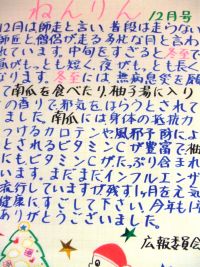 ねんりん
12月号
12月は師走と言い普段は走らない
師匠と僧侶が走る
れています。中旬をすぎると冬至で
気がもっとも短く、夜がもっとも長く
なります。冬至には無病息災を願
て南瓜を食べたり、柚子湯に入り
の香りで邪気をはらうとされて
ました。南瓜には身体の抵抗力
つけるカロテンや風邪予防によ
とされるビタミンCが豊富で柚
にもビタミンCがたっぷり含まれ
います。まだまだインフルエンザ
流行していますが残す1ヶ月を元気
健康にすごして下さい。今年も1年
ありがとうございました。
広報委員会